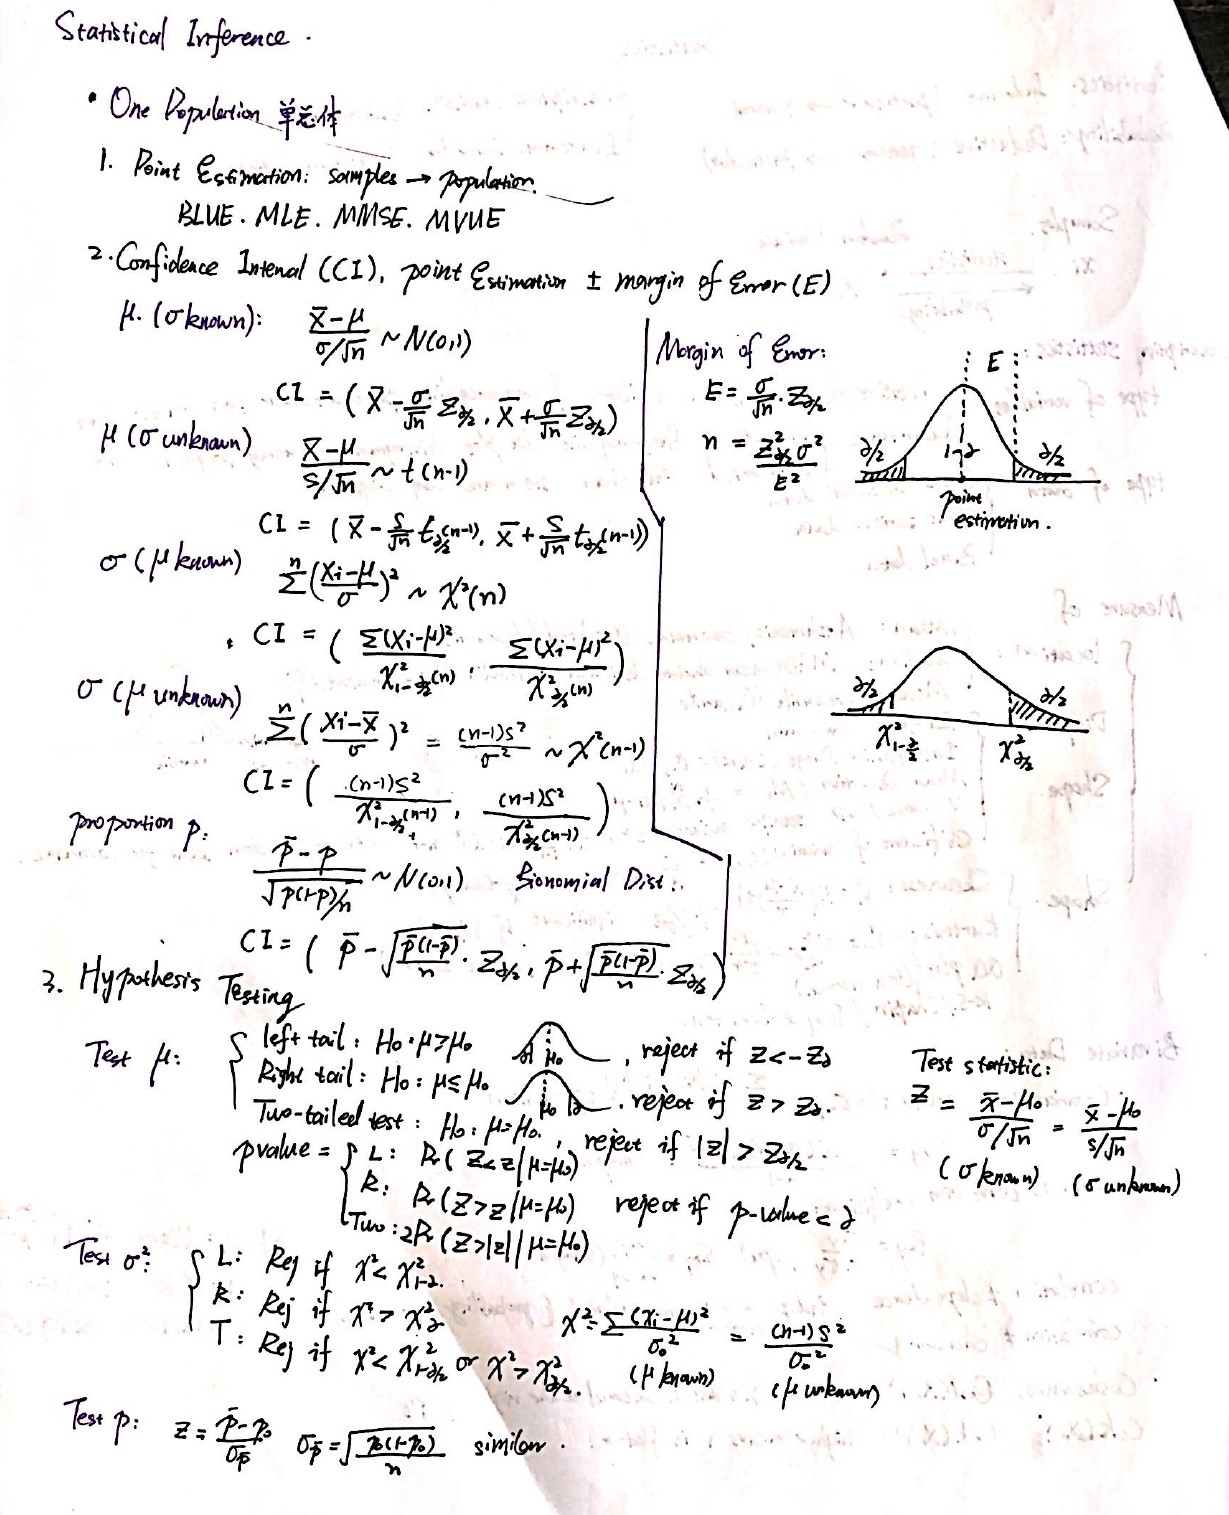 Statistical Inference.
• One Population 单总体
1. Point Estimation: samples → population.
BLUE. MLE. MMSE. MVUE
2. Confidence Interval (CI), point Estimation ± margin of Error (E)
μ. (σ known): (x̄-μ)/(σ/√n) ~ N(0,1)
CI = (x̄ - σ/√n Z∂/2, x̄ + σ/√n Z∂/2)
μ (σ unknown) (x̄-μ)/(s/√n) ~ t(n-1)
CI = (x̄ - s/√n t∂/2(n-1), x̄ + s/√n t∂/2(n-1))
σ (μ known) Σⁿ((xi-μ)/σ)² ~ χ²(n)
CI = (Σ(xi-μ)²/χ²1-∂/2(n), Σ(xi-μ)²/χ²∂/2(n))
σ (μ unknown) Σⁿ((xi-x̄)/σ)² = (n-1)s²/σ² ~ χ²(n-1)
CI = ((n-1)s²/χ²1-∂/2(n-1), (n-1)s²/χ²∂/2(n-1))
proportion p: (p̄-p)/√(p(1-p)/n) ~ N(0,1) Bionomial Dist.
CI = (p̄ - √(p̄(1-p̄)/n) · Z∂/2, p̄ + √(p̄(1-p̄)/n) · Z∂/2)
Margin of Error:
E = σ/√n · Z∂/2
n = Z²∂/2 σ²/E²
E
∂/2 1-∂ ∂/2
point
estimation.
∂/2 ∂/2
χ²1-∂/2 χ²∂/2
3. Hypothesis Testing
Test μ: { left tail: H0: μ≥μ0 ∂ μ0, reject if Z<-Z∂
Right tail: H0: μ≤μ0 μ0 ∂. reject if Z>Z∂.
Two-tailed test: H0: μ=μ0., reject if |Z|>Z∂/2
Test statistic:
Z = (x̄-μ0)/(σ/√n) = (x̄-μ0)/(s/√n)
(σ known) (σ unknown)
pvalue = { L: Pr(Z<z|μ=μ0)
R: Pr(Z>z|μ=μ0) reject if p-value<∂
Two: 2Pr(Z>|z||μ=μ0)
Test σ²: { L: Rej if χ²<χ²1-∂.
R: Rej if χ²>χ²∂
T: Rej if χ²<χ²1-∂/2 or χ²>χ²∂/2.
χ² = Σ(xi-μ)²/σ0² = (n-1)s²/σ0²
(μ known) (μ unknown)
Test p: Z = (p̄-p0)/σp̄ σp̄ = √(p0(1-p0)/n) similar.